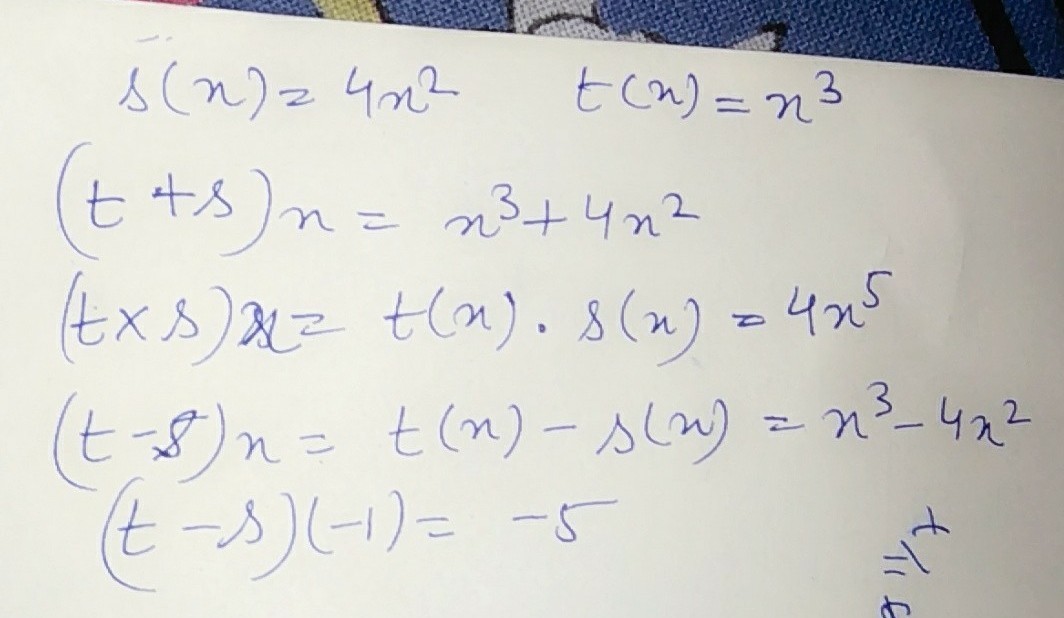 s(x) = 4x² t(x) = x³
(t + s)x = x³ + 4x²
(t × s)x = t(x) . s(x) = 4x⁵
(t - s)x = t(x) - s(x) = x³ - 4x²
(t - s)(-1) = -5